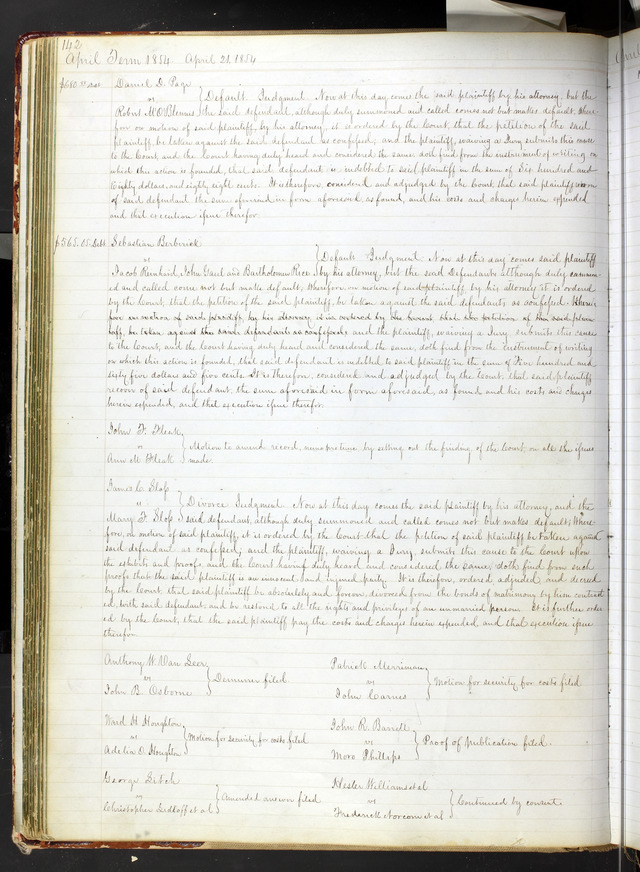 142
April Term 1854 April 21. 1854
$680.88 Debt Daniel D. Page
vs } Default Judgment. Now at this day comes the said plaintiff by his attorney, but the
Robert M. O'Blennis the said defendant, although duly summoned and called comes not but makes default. There
fore on motion of said plaintiff, by his attorney, it is ordered by the Court, that the petition of the said
plaintiff, be taken against the said defendant as confessed; and the plaintiff, waiving a Jury submits this cause
to the Court, and the Court having duly heard and considered the same doth find from the instrument of writing on
which this action is founded, that said defendant is indebted to said plaintiff in the sum of Six hundred and
Eighty dollars, and eighty eight cents. It is therefore, considered and adjudged by the Court that said plaintiff recover
of said defendant the sum aforesaid in form aforesaid, as found, and his costs and charges herein expended
and that execution issue therefor.
$565.05 Debt Sebastian Berberick
vs } Default Judgment Now at this day comes said plaintiff
Jacob Reinhard, John Gaul and Bartholomew Rice by his attorney, but the said Defendants although duly summon
ed and called come not but make default, therefore, on motion of said plaintiff, by his attorney it is ordered
by the Court, that the petition of the said plaintiff, be taken against the said defendants as confessed. There
fore on motion of said plaintiff, by his attorney it is ordered by the Court that the petition of the said plain
tiff, be taken against the said defendants as confessed; and the plaintiff, waiving a Jury submits this cause
to the Court, and the Court having duly heard and considered the same, doth find from the instrument of writing
on which this action is founded, that said defendant is indebted to said plaintiff in the sum of Five hundred and
sixty five dollars and five cents. It is therefore, considered and adjudged by the Court that said plaintiff
recover of said defendant, the sum aforesaid in form aforesaid, as found, and his costs and charges
herein expended, and that execution issue therefor.
John F. Fleak
vs } Motion to amend record, nunc pro tunc by setting out the finding of the Court, on all the issues
Ann M. Fleak made.
James C. Sloss
vs } Divorce Judgment. Now at this day comes the said plaintiff by his attorney, and the
Mary F. Sloss said defendant, although duly summoned and called comes not but makes default; There
fore, on motion of said plaintiff, it is ordered by the Court that the petition of said plaintiff be taken against
said defendant as confessed, and the plaintiff, waiving a Jury, submits this cause to the Court upon
the exhibits and proofs, and the Court having duly heard and considered the same, doth find from such
proofs that the said plaintiff is an innocent and injured party. It is therefore, ordered, adjudged and decreed
by the Court, that said plaintiff be absolutely and forever, divorced from the bonds of matrimony by him contract
ed with said defendant, and be restored to all the rights and privileges of an unmarried person. It is further order
ed by the Court, that the said plaintiff pay the costs and charges herein expended, and that execution issue
therefor.
Anthony W. Van Leer
vs } Demurrer filed
John B. Osborne
Patrick Merriman
vs } Motion for security for costs filed
John Carnes
Ward H. Houghton
vs } Motion for security for costs filed
Adelia O. Houghton
John R. Barrett
vs } Proof of publication filed.
Moro Phillips
George Leitch
vs } Amended answer filed
Christopher Ledloff et al
Hesler Williams et al
vs } Continued by consent
Frederick Norcom et al